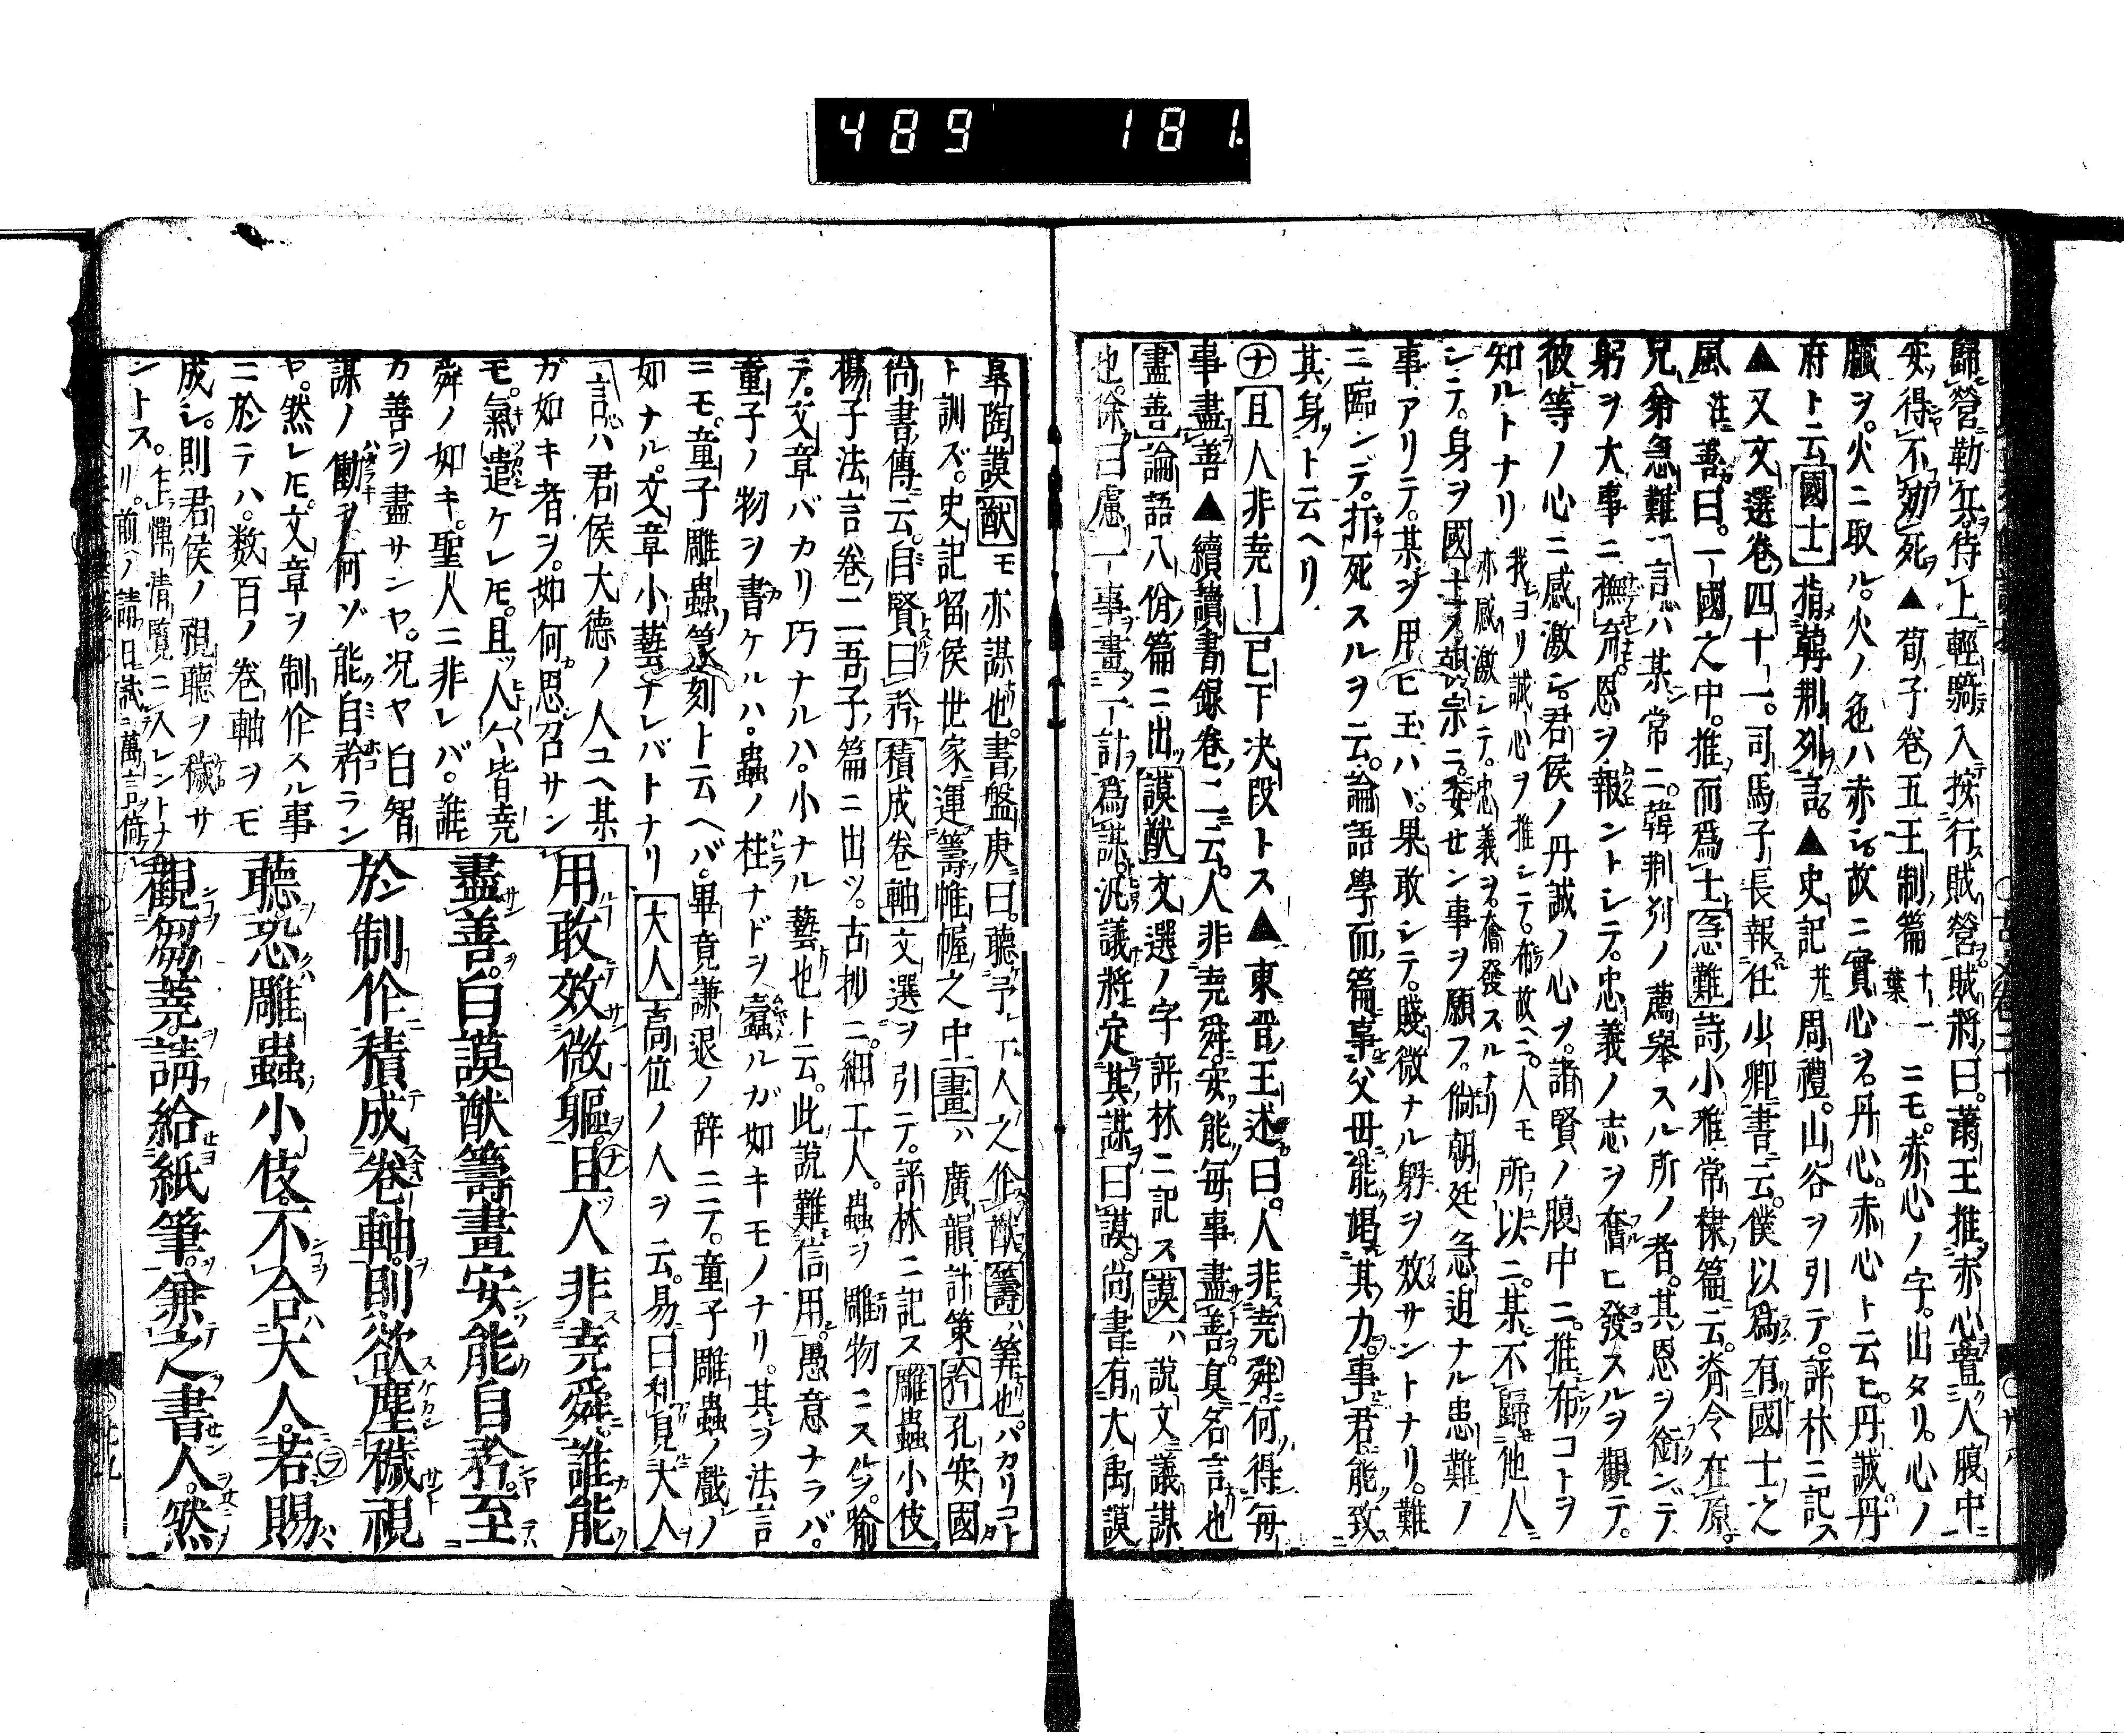 489 181.
歸營勒兵待上輕騎入按行賊營賊將曰蕭王推赤心置人腹中
安得不効死▲荀子卷五王制篇十一葉ニモ赤心ノ字出タリ心ノ
臟ヲ火ニ取ル火ノ色ハ赤シ故ニ實心ヲ丹心赤心ト云ヒ丹誠丹
府ト云國士指韓荆列言▲史記并周禮山谷ヲ引テ評林ニ記ス
▲又文選卷四十一司馬子長報任少卿書云僕以爲有國士之
風註善曰一國之中推而爲士急難詩小雅常棣篇云脊令在原
兄弟急難言ハ某常ニ韓荆列ノ薦舉スル所ノ者其恩ヲ銜ンデ
躬ヲ大事ニ撫育恩ヲ報ントシテ忠義ノ志ヲ奮ヒ發スルヲ觀テ
彼等ノ心ニ感激シ君侯ノ丹誠ノ心ヲ諸賢ノ腹中ニ推布コトヲ
知ルトナリ我ヨリ誠心ヲ推シテ布故ニ人モ亦感激シテ忠義ヲ奮發スルナリ所以ニ某不歸他人ニ
シテ身ヲ國士ノ宗ニ委セン事ヲ願フ倘朝廷急迫ナル患難ノ
事アリテ某ヲ用ヒ玉ハヾ果敢シテ賤微ナル躬ヲ效サントナリ難
ニ臨ンデ打死スルヲ云論語學而篇事父母能竭其力事君能致
其身ト云ヘリ
ナ且人非尭ー已下決段トス▲東晋王述曰人非尭舜何得每
事盡善▲續讀書録卷二云人非尭舜安能每事盡善眞名言也
盡善論語八佾篇ニ出謨猷文選ノ字評林ニ記ス謨ハ説文議謀
也徐曰慮一事畫一計爲謀汎議將定其謀曰謨尚書有大禹謨
皐陶謨猷モ亦謀也書盤庚曰聽予一人之作猷籌ハ筭也ハカリコト
ト訓ズ史記留侯世家運籌帷幄之中畫ハ廣韻計策矜孔安國
尚書傳云自賢曰矜積成卷軸文選ヲ引テ評林ニ記ス雕蟲小伎
楊子法言卷二吾子篇ニ出ツ古抄ニ細工人蟲ヲ雕物ニスルヲ喩
テ文章バカリ巧ナルハ小ナル藝也ト云此説難信用愚意ナラバ
童子ノ物ヲ書ケルハ蟲ノ柱ナドヲ蠹ルガ如キモノナリ其ヲ法言
ニモ童子雕蟲篆刻ト云ヘバ畢竟謙退ノ辞ニテ童子雕蟲ノ戯ノ
如ナル文章小藝ナレバトナリ大人高位ノ人ヲ云易曰利見大人
言ハ君侯大德ノ人ユヘ某
ガ如キ者ヲ如何思召サン
モ氣遣ケレ𪜈且ツ人人皆尭
舜ノ如キ聖人ニ非レバ誰
カ善ヲ盡サンヤ况ヤ白智
謀ノ働ヲ何ゾ能自矜ラン
ヤ然レ𪜈文章ヲ制作スル事
ニ於テハ数百ノ卷軸ヲモ
成シ則君侯ノ視聽ヲ穢サ
ントス
用敢效微軀ナ且人非尭舜誰能
盡善白謨猷籌畫安能自矜至
於制作積成卷軸則欲塵穢視
聽恐雕蟲小伎不合大人ラ若賜
觀芻蕘請給紙筆兼之書人然